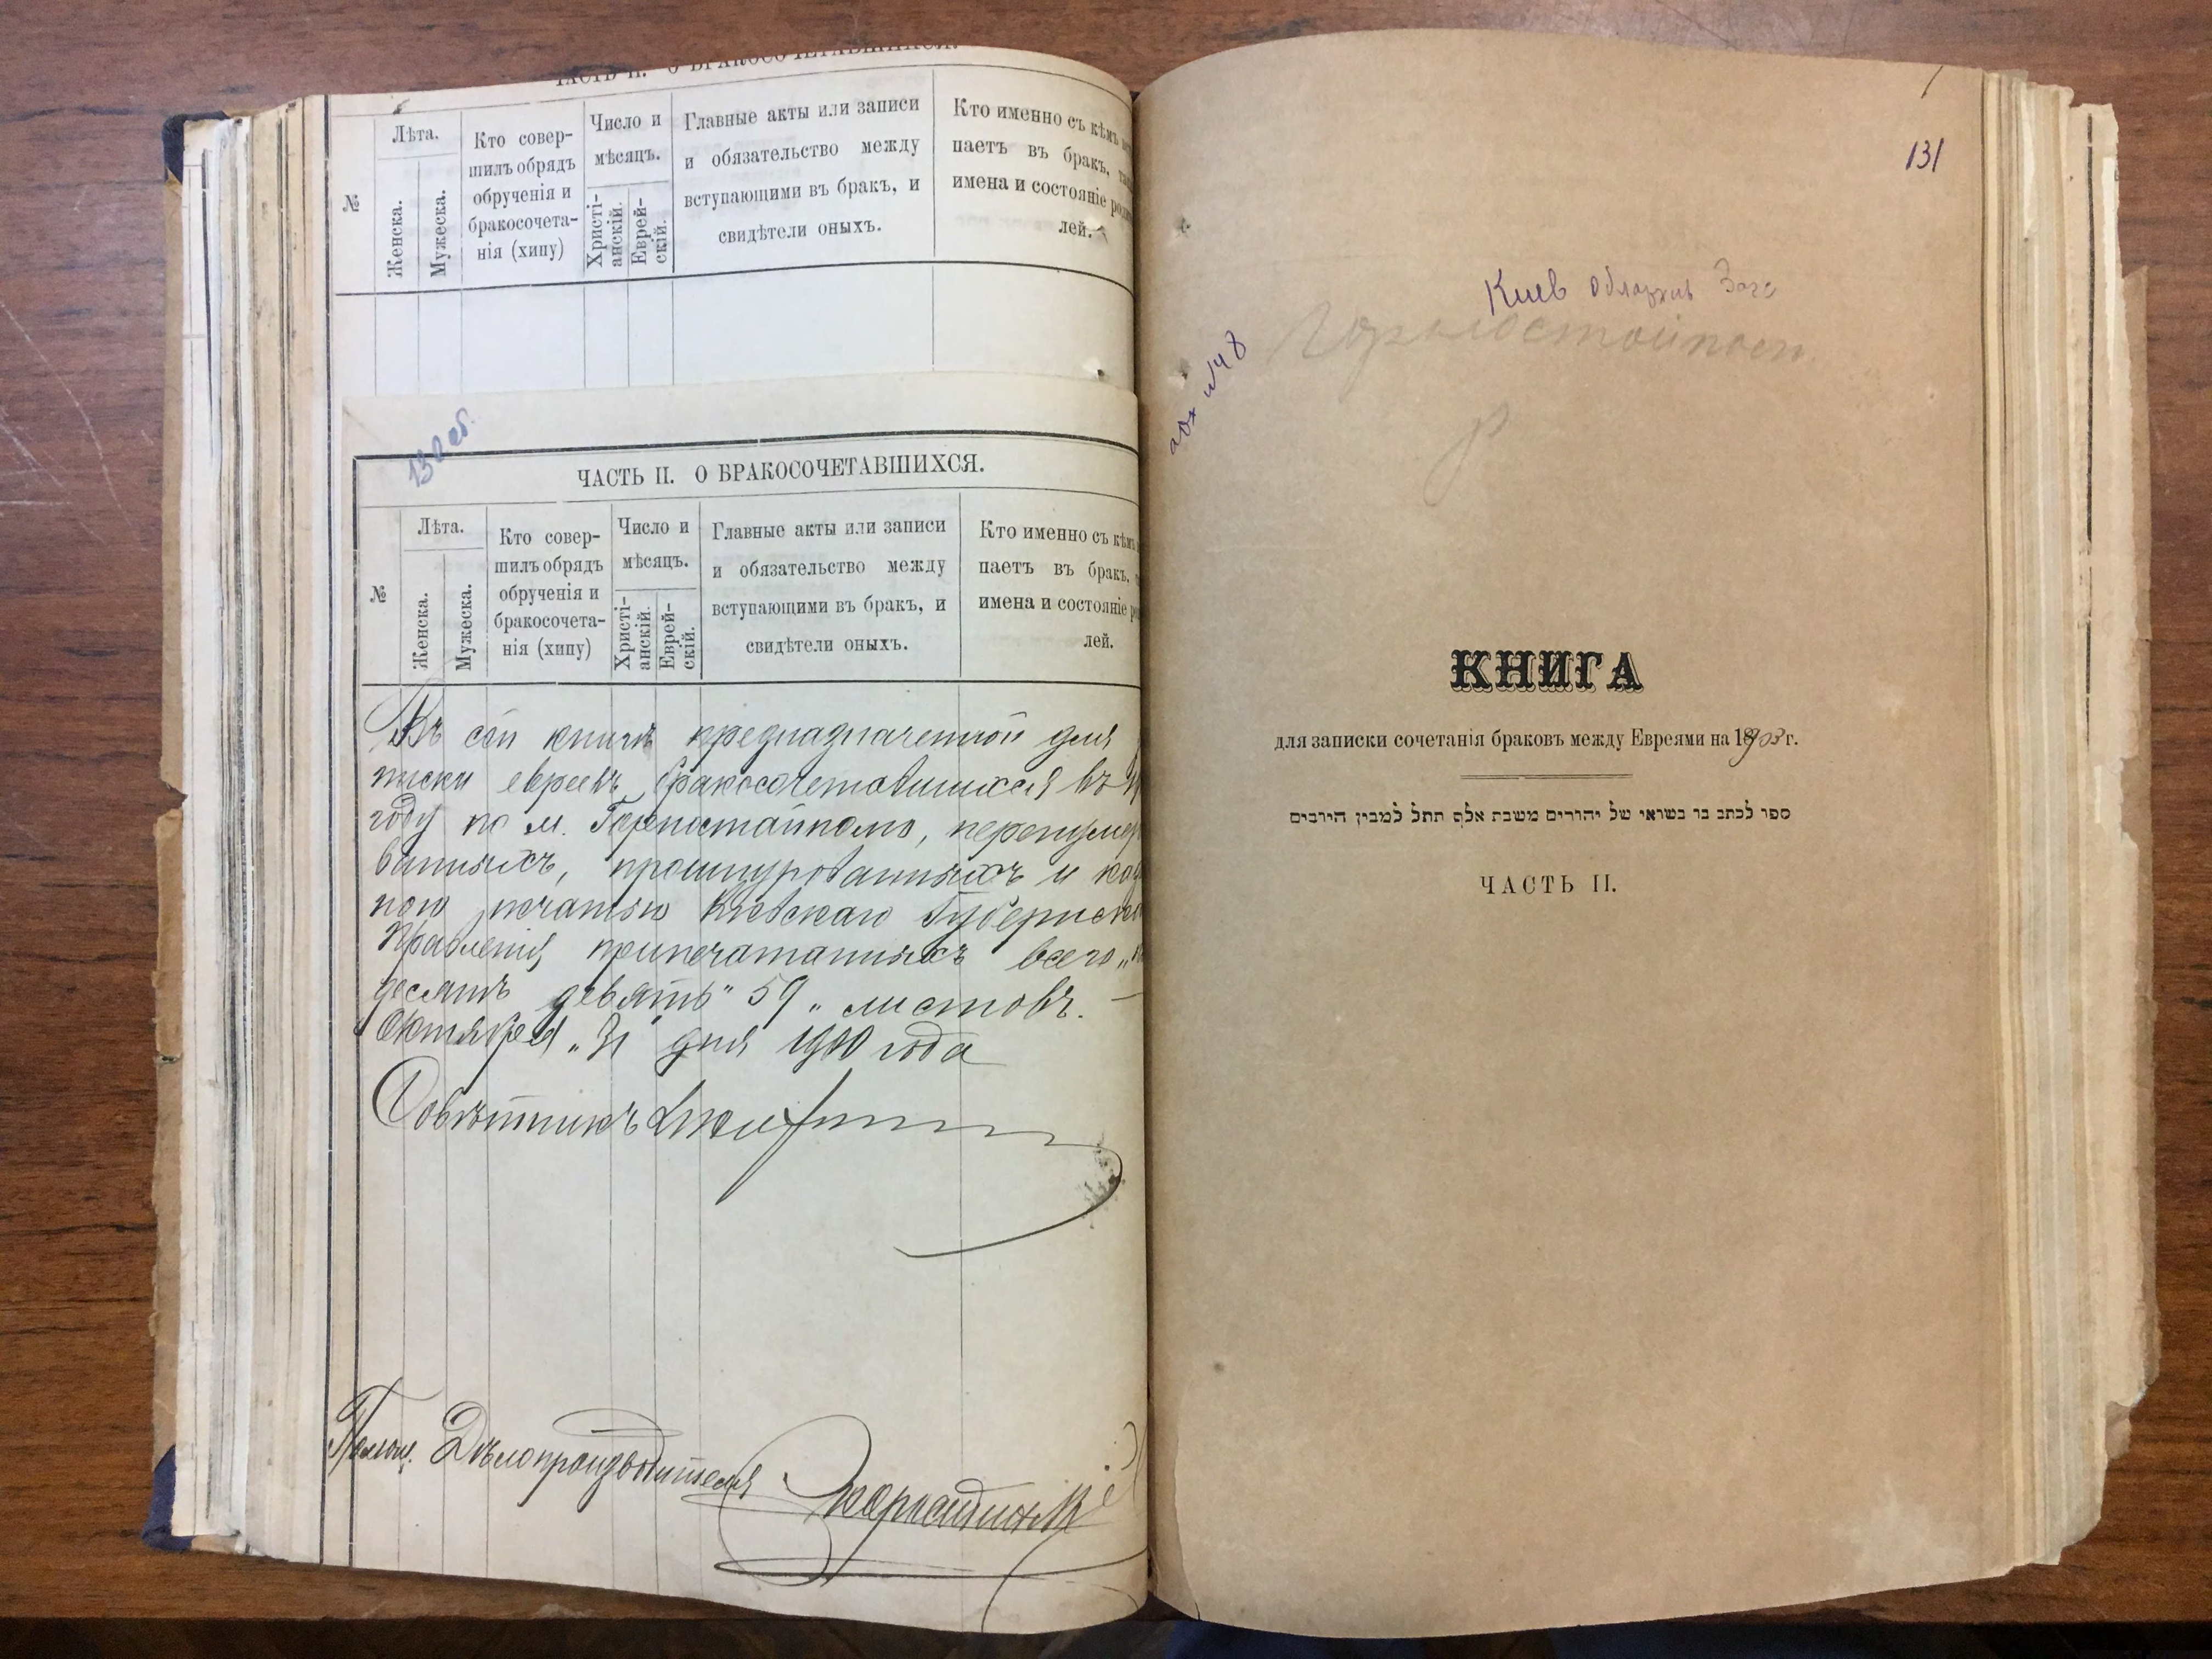 ЧАСТЬ II. О БРАКОСОЧЕТАВШИХСЯ.
№
Лѣта.
Женска.
Мужеска.
Кто совер-
шилъ обрядъ
обрученія и
бракосочета-
нія (хипу)
Число и
мѣсяцъ.
Христі-
анскій.
Еврей-
скій.
Главные акты или записи
и обязательство между
вступающими въ бракъ, и
свидѣтели оныхъ.
Кто именно съ кѣмъ
паетъ въ бракъ,
имена и состояніе
лей.
130 об.
ЧАСТЬ II. О БРАКОСОЧЕТАВШИХСЯ.
№
Лѣта.
Женска.
Мужеска.
Кто совер-
шилъ обрядъ
обрученія и
бракосочета-
нія (хипу)
Число и
мѣсяцъ.
Христі-
анскій.
Еврей-
скій.
Главные акты или записи
и обязательство между
вступающими въ бракъ, и
свидѣтели оныхъ.
Кто именно съ кѣмъ
паетъ въ бракъ,
имена и состояніе
лей.
Въ сей книгѣ предназначенной для
писки евреевъ бракосочетавшихся въ
году по м. Горностайполю, перенумеро
ванныхъ, прошнурованныхъ и казен
ною печатью Кіевскаго Губернска
Правленія припечатанныхъ всего
десятъ девять" 59 " листовъ. —
Октября „31 дня 1900 года
Совѣтникъ
Помощ. Дѣлопроизводителя
131
Киев Облархив Загс
Горностайпол
р
КНИГА
для записки сочетанія браковъ между Евреями на 1903 г.
ספר לכתב בו בשואי של יהורים משבת אלף תתל למבין היובים
ЧАСТЬ II.